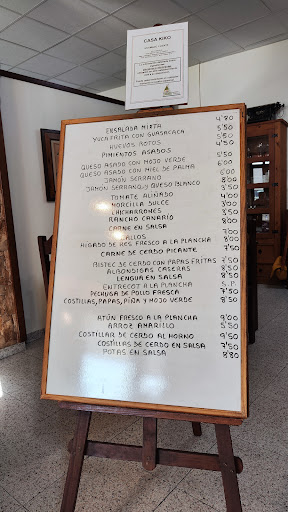 CASA KIKO
ENSALADA MIXTA 4'80
YUCA FRITA CON GUASACACA 5'50
HUEVOS ROTOS 4'50
PIMIENTOS ASADOS
QUESO ASADO CON MOJO VERDE 5'50
QUESO ASADO CON MIEL DE PALMA 6'00
JAMÓN SERRANO 6'00
JAMÓN SERRANO Y QUESO BLANCO 8'00
TOMATE ALIÑADO
MORCILLA DULCE
CHICHARRONES
RANCHO CANARIO
CARNE EN SALSA
CALLOS
HIGADO DE RES FRESCO A LA PLANCHA 8'00
CARNE DE CERDO PICANTE 7'50
BISTEC DE CERDO CON PAPAS FRITAS 7'50
ALBONDIGAS CASERAS
LENGUA EN SALSA 8'50
ENTRECOT A LA PLANCHA S.P.
PECHUGA DE POLLO FRESCA 7'50
COSTILLAS, PAPAS, PIÑA Y MOJO VERDE 8'50
ATÚN FRESCO A LA PLANCHA 9'00
ARROZ AMARILLO 5'50
COSTILLAR DE CERDO AL HORNO 9'50
COSTILLAS DE CERDO EN SALSA 7'50
POTAS EN SALSA 8'80